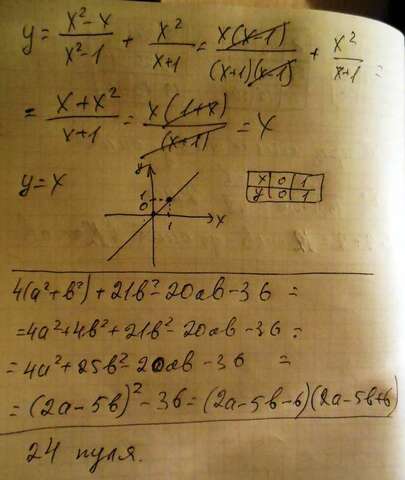 y = (x² - x)/(x² - 1) + x²/(x+1) = x(x-1)/((x+1)(x-1)) + x²/(x+1) =
= (x + x²)/(x+1) = x(1+x)/(x+1) = x
y = x
y
1
0
1
x
x 0 1
y 0 1
4(a² + b²) + 21b² - 20ab - 36 =
= 4a² + 4b² + 21b² - 20ab - 36 =
= 4a² + 25b² - 20ab - 36 =
= (2a - 5b)² - 36 = (2a - 5b - 6)(2a - 5b + 6)
24 нуля.